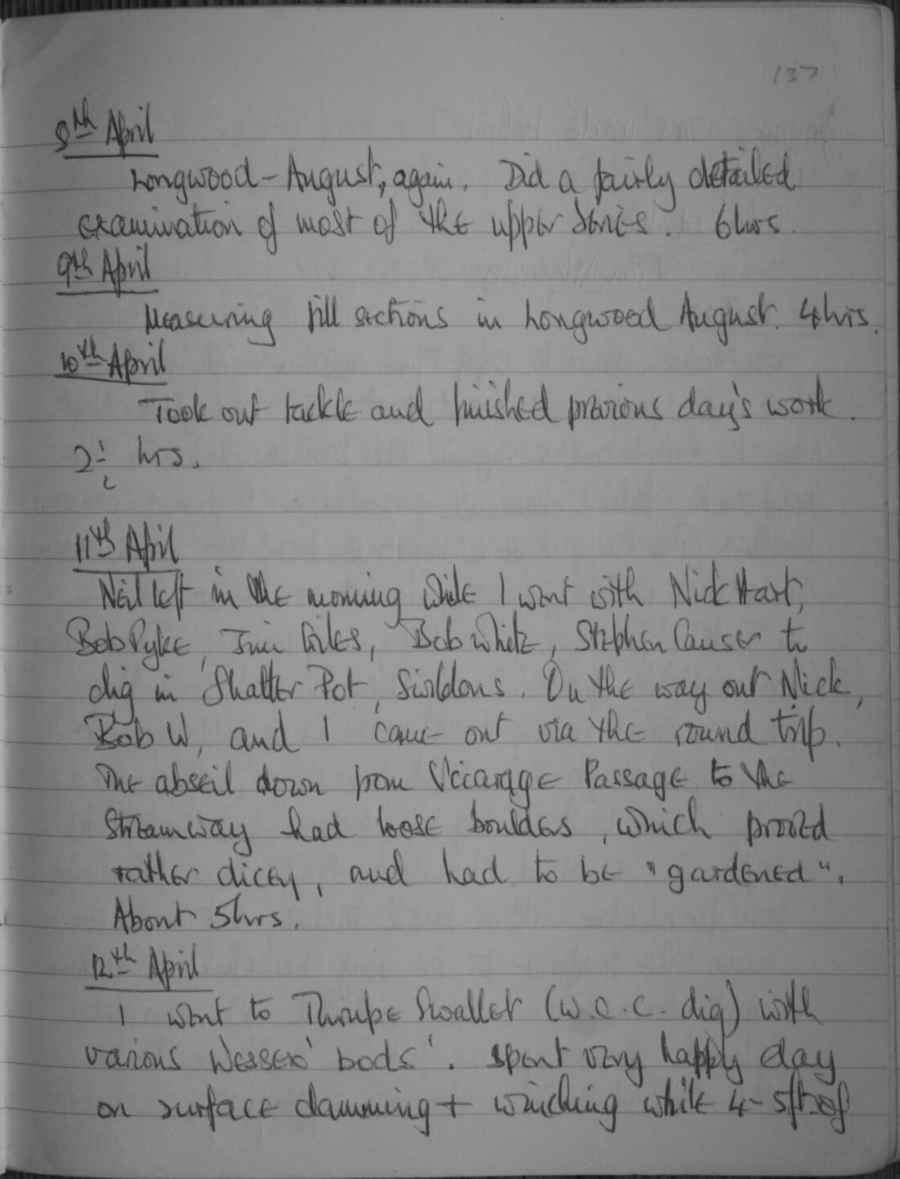 137
8th April
Longwood - August, again. Did a fairly detailed
examination of most of the upper series. 6hrs.
9th April
Measuring fill sections in Longwood August. 4hrs.
10th April
Took out tackle and finished previous day's work.
2½ hrs.
11th April
Neil left in the morning while I went with Nick Hart,
Bob Pyke, Jim Giles, Bob White, Stephen Causer to
dig in Shatter Pot, Swildons. On the way out Nick,
Bob W, and I came out via the round trip.
The abseil down from Vicarage Passage to the
streamway had loose boulders, which proved
rather dicey, and had to be "gardened".
About 5hrs.
12th April
I went to Thrupe Swallet (W.C.C. dig) with
various Wessex 'bods'. Spent very happy day
on surface damming + winching while 4-5ft of